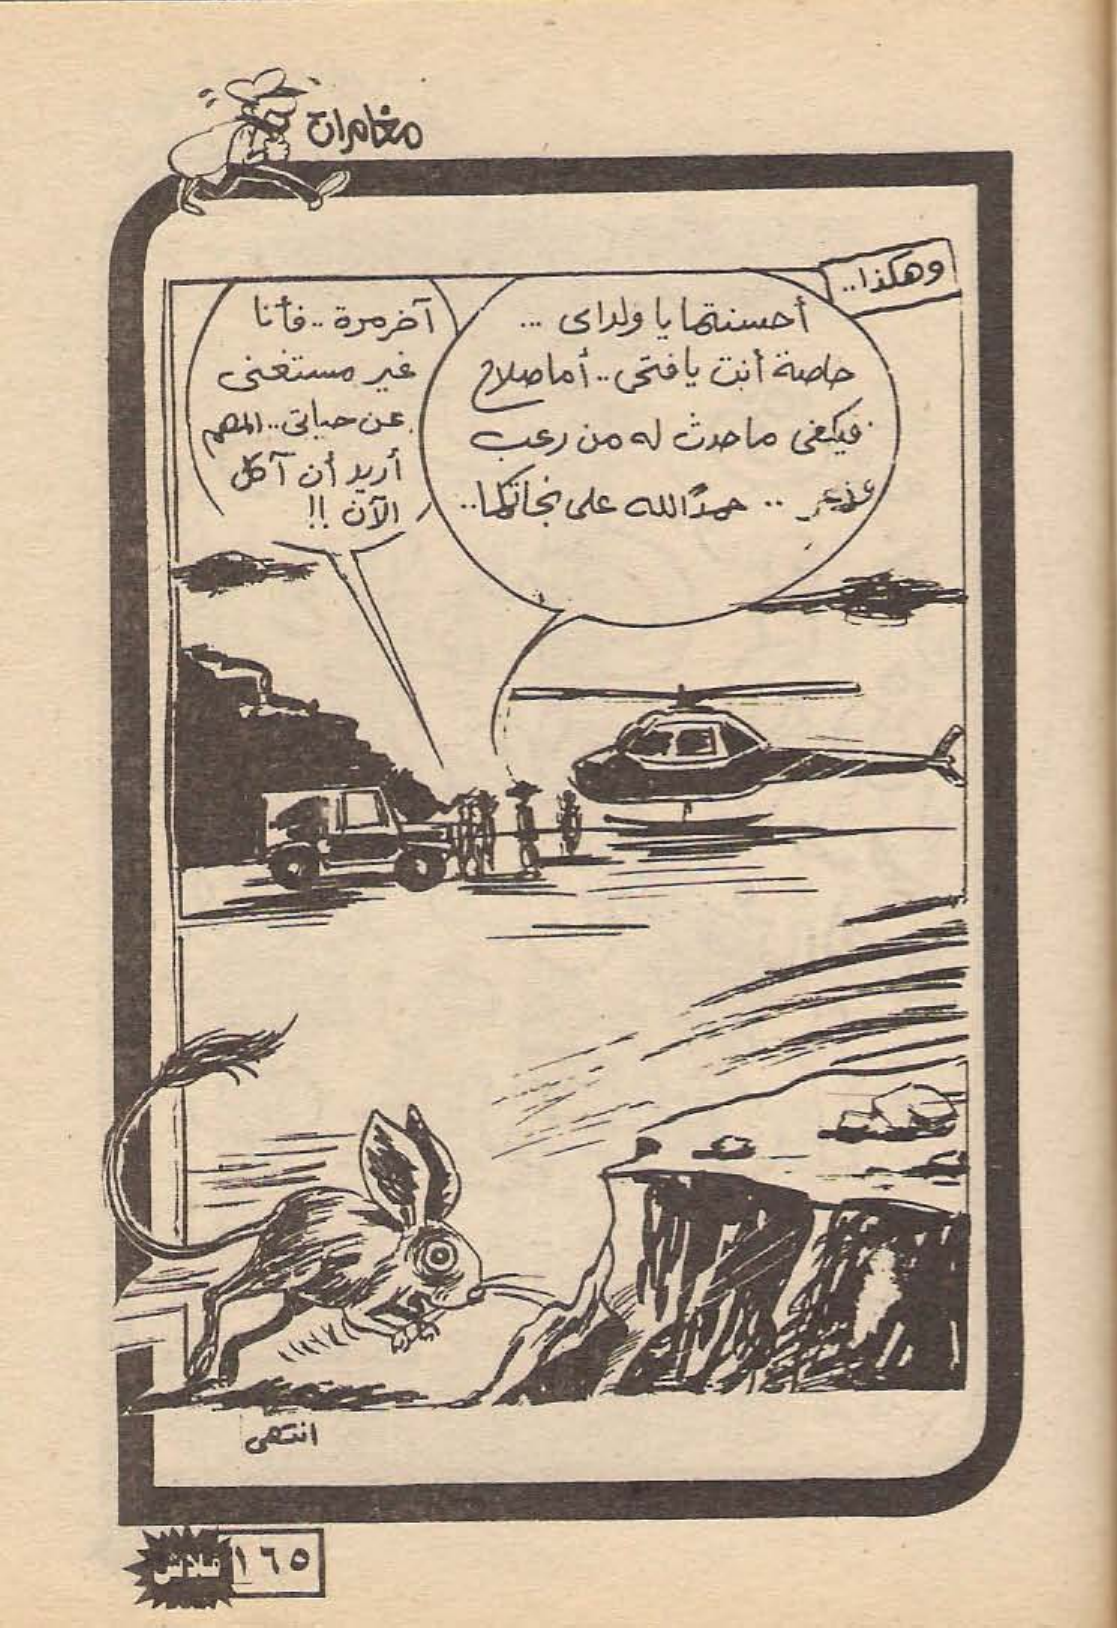 مغامرات
وهكذا..
أحسنتما يا ولداى ...
خاصة أنت يا فتحى.. أما صلاح
فيكفى ما حدث له من رعب
.. حمدًا لله على نجاتكما..
آخر مرة.. فأنا
غير مستغنى
عن حياتى.. المهم
أريد أن آكل
الآن !!
انتهى
١٦٥
فلاش